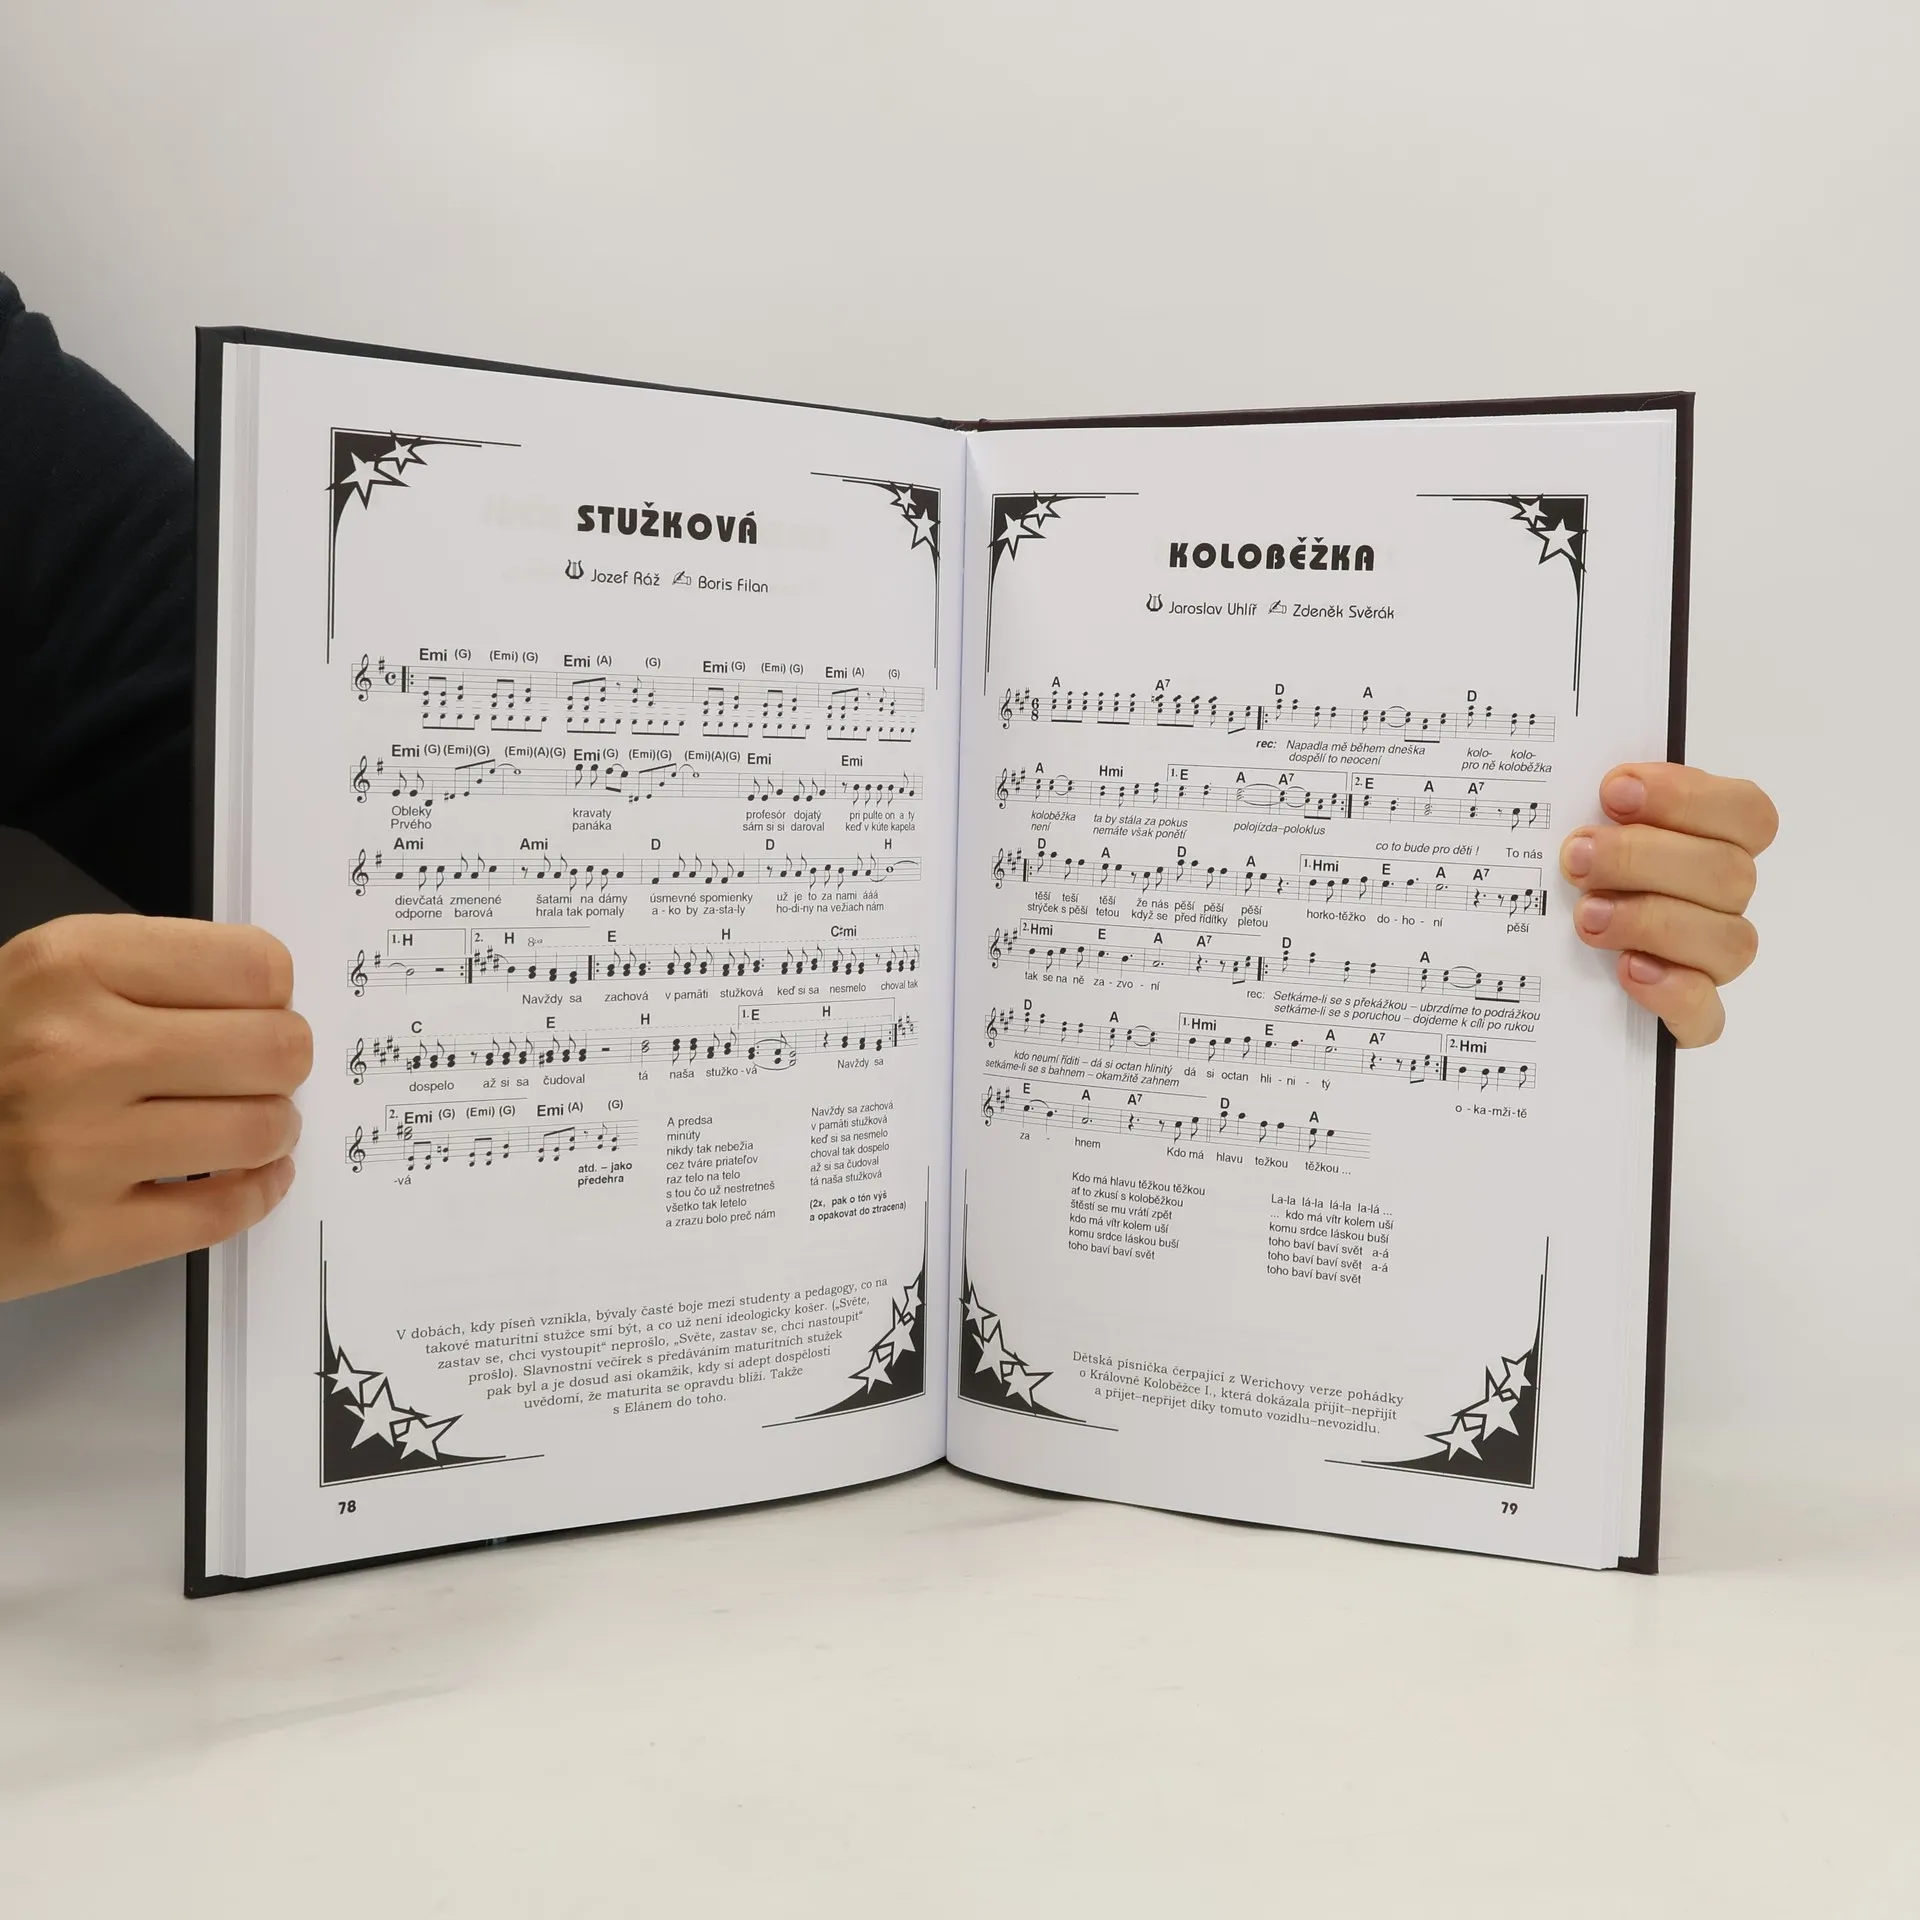 STUŽKOVÁ
Jozef Ráž Boris Filan
Emi (G) (Emi) (G) Emi (A) (G) Emi (G) (Emi) (G) Emi (A) (G)
Emi (G) (Emi)(G) (Emi)(A)(G) Emi (G) (Emi)(G) (Emi)(A)(G) Emi Emi
Obleky kravaty profesór dojatý pri pulte on a ty
Prvého panáka sám si si daroval keď v kúte kapela
Ami Ami D D H
dievčatá zmenené šatami na dámy úsmevné spomienky už je to za nami ááá
odporne barová hrala tak pomaly a - ko by za-sta-ly ho-di-ny na vežiach nám
1. H 2. H 8va E H C#mi
Navždy sa zachová v pamäti stužková keď si sa nesmelo choval tak
C E H 1. E H
dospelo až si sa čudoval tá naša stužko - vá Navždy sa
2. Emi (G) (Emi) (G) Emi (A) (G)
-vá
atd. – jako
předehra
A predsa
minúty
nikdy tak nebežia
cez tváre priateľov
raz telo na telo
s tou čo už nestretneš
všetko tak letelo
a zrazu bolo preč nám
Navždy sa zachová
v pamäti stužková
keď si sa nesmelo
choval tak dospelo
až si sa čudoval
tá naša stužková
(2x, pak o tón výš
a opakovat do ztracena)
V dobách, kdy píseň vznikla, bývaly časté boje mezi studenty a pedagogy, co na
takové maturitní stužce smí být, a co už není ideologicky košer. („Světe,
zastav se, chci vystoupit“ neprošlo, „Světe, zastav se, chci nastoupit“
prošlo). Slavnostní večírek s předáváním maturitních stužek
pak byl a je dosud asi okamžik, kdy si adept dospělosti
uvědomí, že maturita se opravdu blíží. Takže
s Elánem do toho.
78
KOLOBĚŽKA
Jaroslav Uhlíř Zdeněk Svěrák
A A7 D A D
rec: Napadla mě během dneška kolo- kolo-
dospělí to neocení pro ně koloběžka
A Hmi 1. E A A7 2. E A A7
koloběžka ta by stála za pokus polojízda–poloklus
není nemáte však ponětí co to bude pro děti ! To nás
D A D A 1. Hmi E A A7
těší teší těší že nás pěší pěší pěší horko-těžko do - ho - ní pěší
strýček s pěší tetou když se před řídítky pletou
2. Hmi E A A7 D A
tak se na ně za - zvo - ní rec: Setkáme-li se s překážkou – ubrzdíme to podrážkou
setkáme-li se s poruchou – dojdeme k cíli po rukou
D A 1. Hmi E A A7 2. Hmi
kdo neumí říditi – dá si octan hlinitý dá si octan hli - ni - tý
setkáme-li se s bahnem – okamžitě zahnem o - ka-mži-tě
E A A7 D A
za - hnem Kdo má hlavu težkou těžkou ...
Kdo má hlavu těžkou těžkou
ať to zkusí s koloběžkou
štěstí se mu vrátí zpět
kdo má vítr kolem uší
komu srdce láskou buší
toho baví baví svět
La-la lá-la lá-la la-lá ...
... kdo má vítr kolem uší
komu srdce láskou buší
toho baví baví svět a-á
toho baví baví svět a-á
toho baví baví svět
Dětská písnička čerpající z Werichovy verze pohádky
o Královně Koloběžce I., která dokázala přijít–nepřijít
a přijet–nepřijet díky tomuto vozidlu–nevozidlu.
79